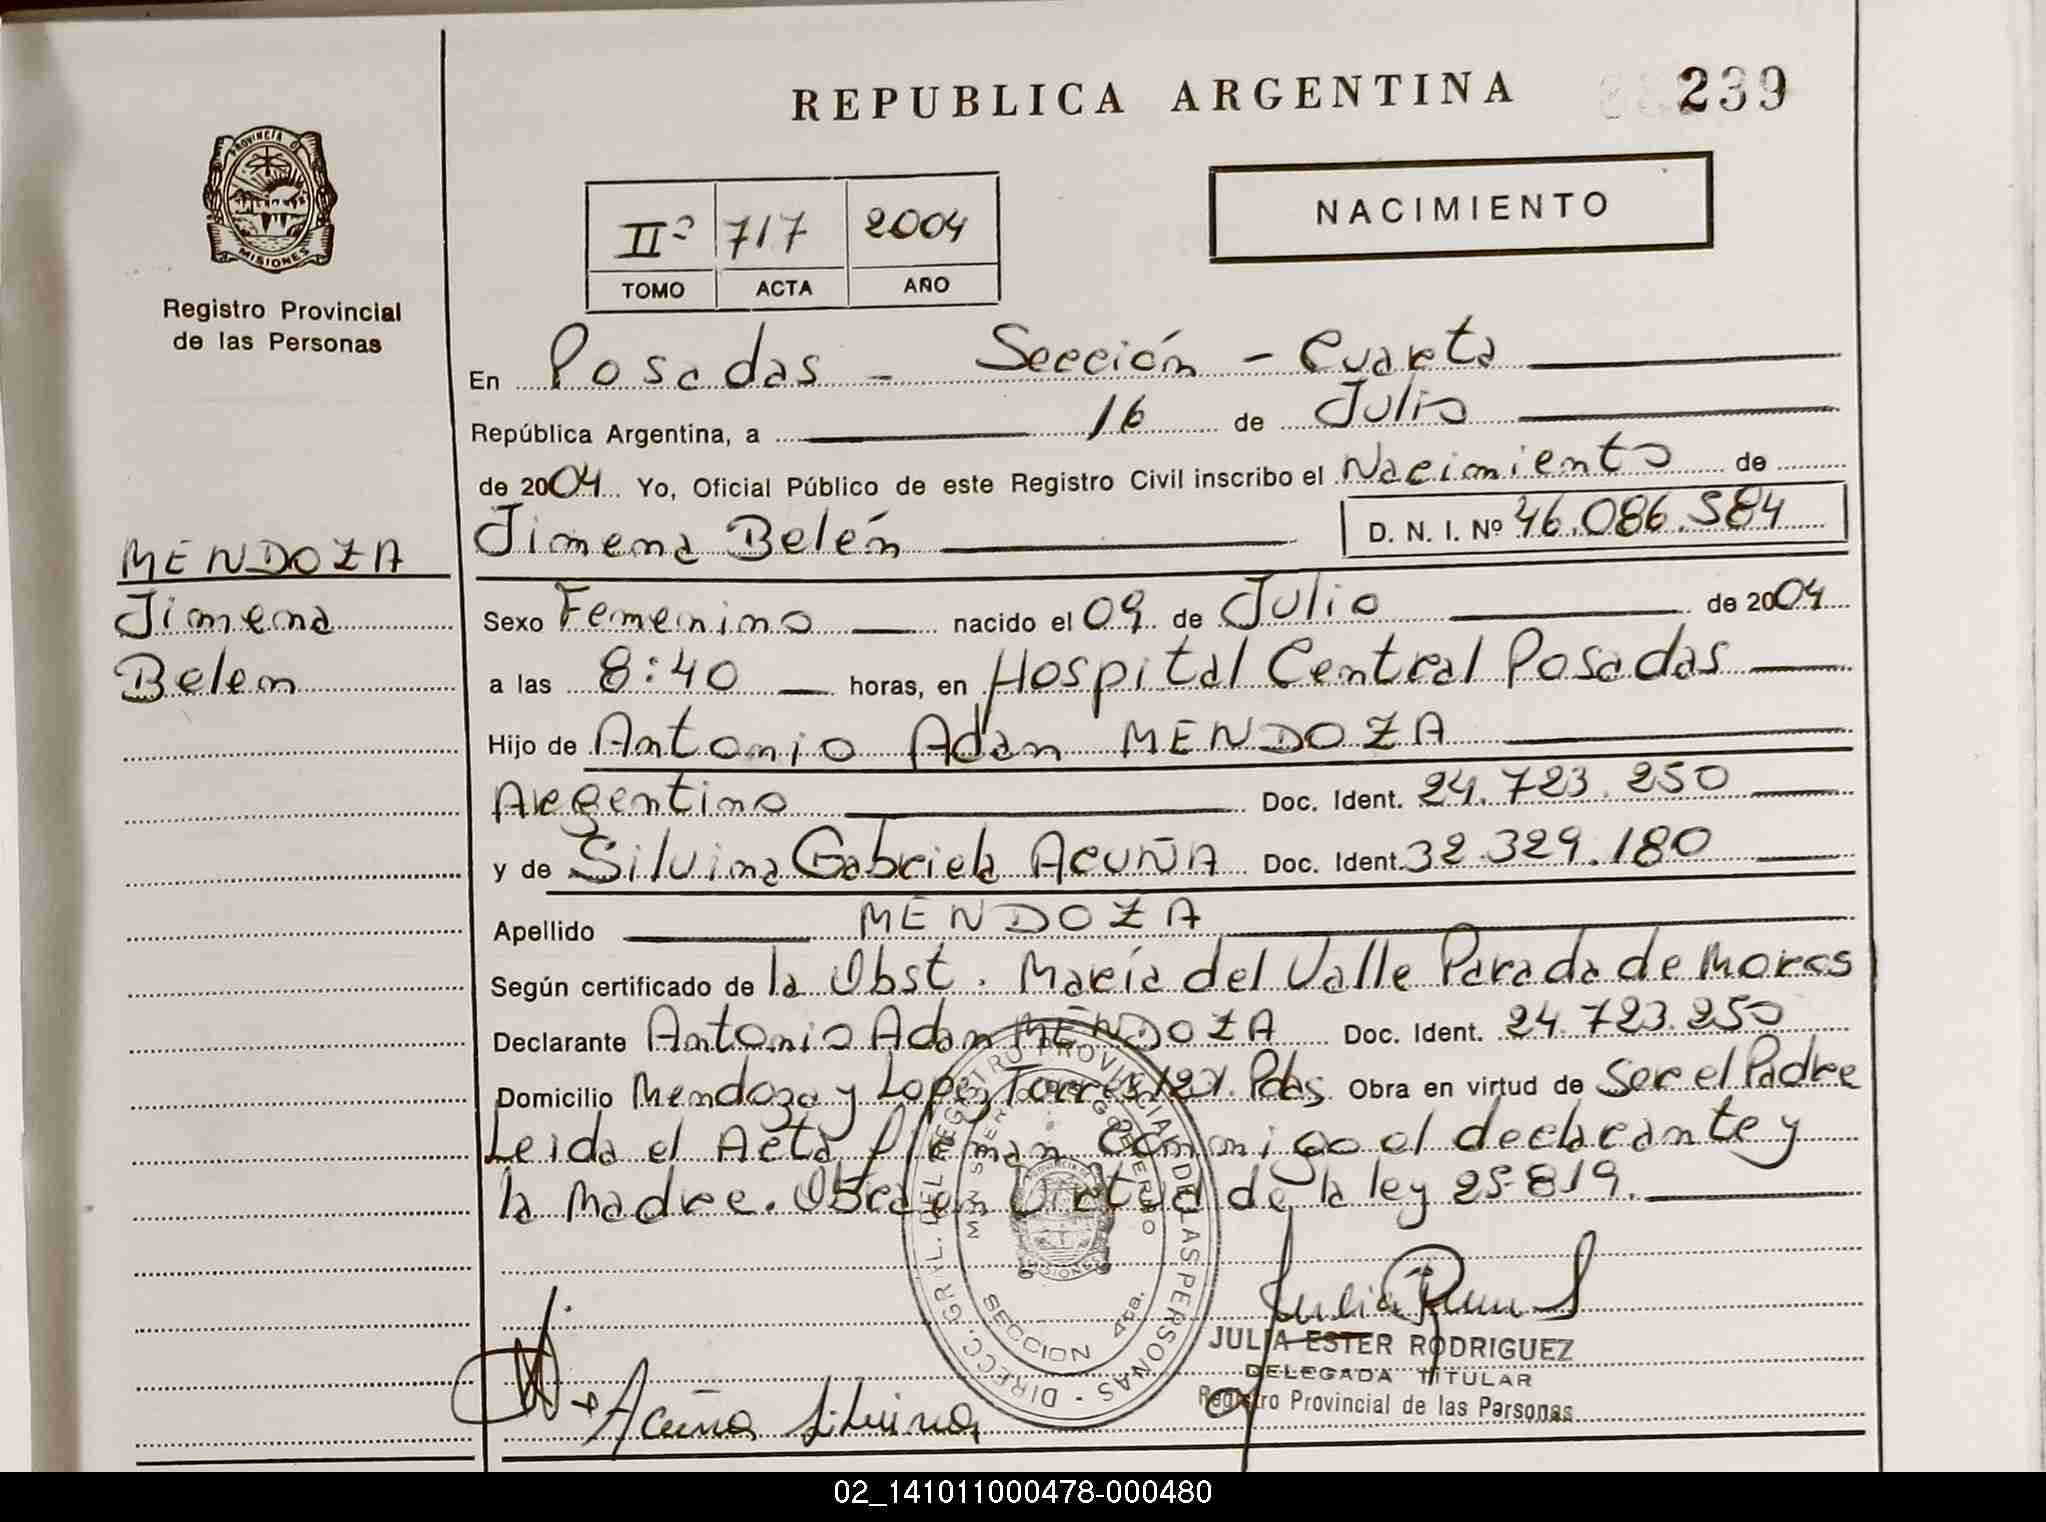 REPUBLICA ARGENTINA
239
PROVINCIA DE
MISIONES
Registro Provincial
de las Personas
IIº 717 2004
TOMO ACTA AÑO
NACIMIENTO
En Posadas - Sección - Cuarta
República Argentina, a 16 de Julio
de 2004 Yo, Oficial Público de este Registro Civil inscribo el Nacimiento de
Jimena Belén D. N. I. Nº 46.086.584
MENDOZA
Jimena
Belen
Sexo Femenino nacido el 09 de Julio de 2004
a las 8:40 horas, en Hospital Central Posadas
Hijo de Antonio Adan MENDOZA
Argentino Doc. Ident. 24.723.250
y de Silvina Gabriela ACUÑA Doc. Ident. 32.329.180
Apellido MENDOZA
Según certificado de la Obst. María del Valle Parada de Moras
Declarante Antonio Adan MENDOZA Doc. Ident. 24.723.250
Domicilio Mendoza y Lopez Torres Pdas. Obra en virtud de Ser el Padre
Leida el Acta firman conmigo el declarante y
la madre. Obra en Virtud de la ley 25.819.
DIRECC. GRAL. DEL REGISTRO PROVINCIAL DE LAS PERSONAS
GOBIERNO
SECCION 4ta.
MISIONES
Acuña Silvina
JULIA ESTER RODRIGUEZ
DELEGADA TITULAR
Registro Provincial de las Personas
02_141011000478-000480